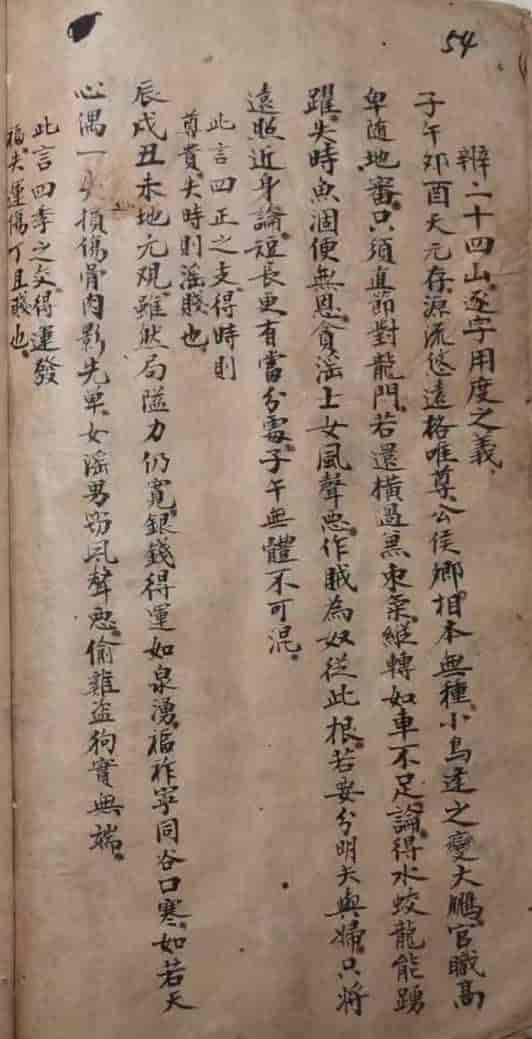 54
辨二十四山逐字用度之義
子午夘酉天元存源流悠遠格唯尊公侯鄉相本無種小鳥逢之變大鵬官職高
卑随地審只須直節對龍門若還橫過無束氣縱轉如車不足論得水蛟龍能踴
躍失時魚涸便無恩貪淫士女風聲悪作賊為奴從此根若要分明夫與婦只將
遠照近身論短長更有當分處子午無體不可混
此言四正之支得時則
尊貴失時則淫賤也
辰戌丑未地元观雖然局隘力仍寬銀錢得運如泉湧福祚寧同谷口寒如若天
心偶一失損傷骨肉影先单女淫男窃風聲悪偷雞盗狗實無端
此言四季之支得運發
福失運傷丁且賤也